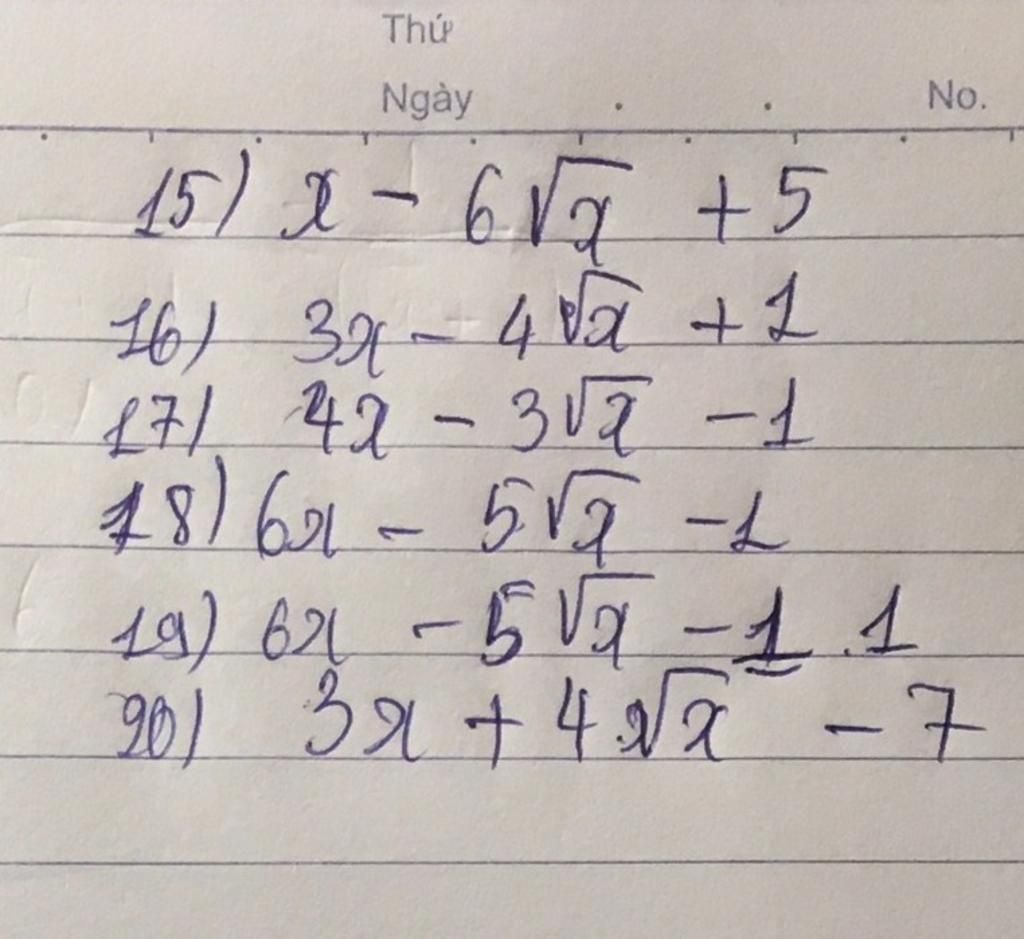 Thứ
Ngày . . No.
15) x - 6√x + 5
16) 3x - 4√x + 1
17) 4x - 3√x - 1
18) 6x - 5√x - 1
19) 6x - 5√x - 1 . 1
20) 3x + 4√x - 7